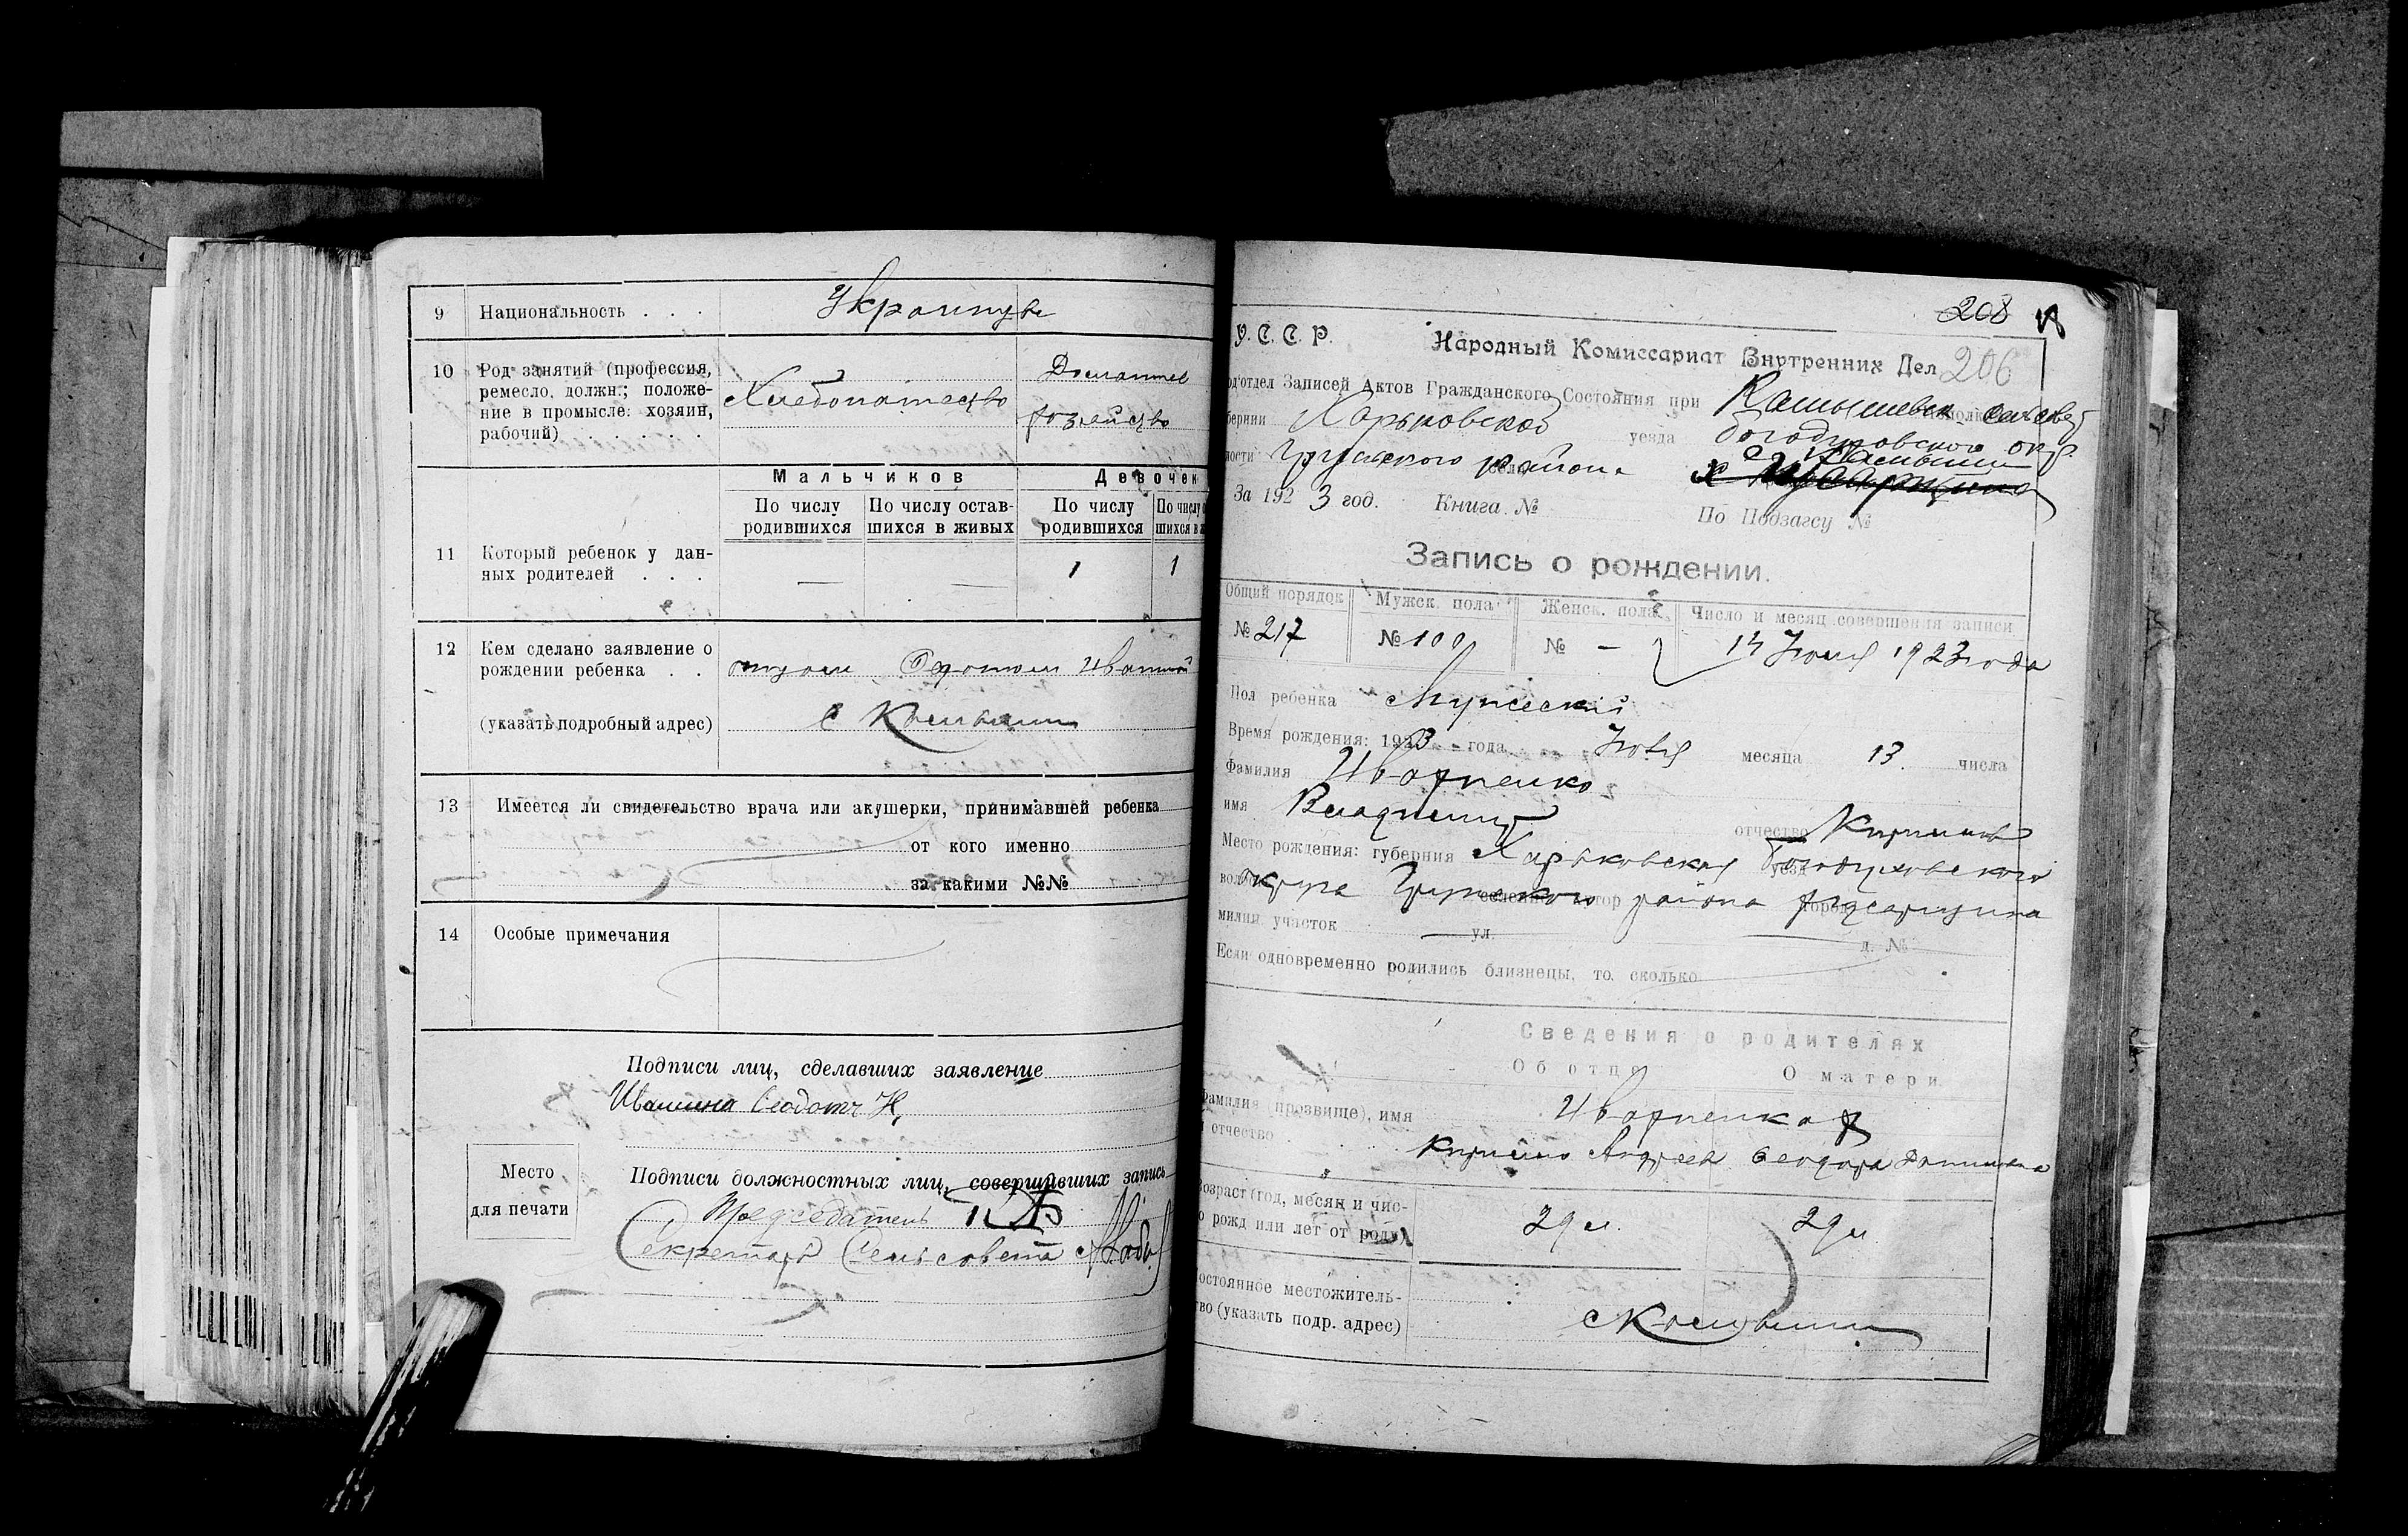 9 Национальность . . . Украинцы
10 Род занятий (профессия,
ремесло, должн.; положе-
ние в промысле: хозяин,
рабочий) . . . .
Хлебопашество
Домашнее
хозяйство
Мальчиков Девочек
По числу
родившихся
По числу остав-
шихся в живых
По числу
родившихся
По числу о
шихся в ж
11 Который ребенок у дан-
ных родителей . . .
— — 1 1
12 Кем сделано заявление о
рождении ребенка . .
отцом Федотом Ивашиной
(указать подробный адрес) с Камыши
13 Имеется ли свидетельство врача или акушерки, принимавшей ребенка
от кого именно
за какими №№
14 Особые примечания
Подписи лиц, сделавших заявление
Ивашина Феодотъ Н,
Место
для печати
Подписи должностных лиц, совершивших запись
Председатель
Секретарь Сельсовета
208
У. С. С. Р. Народный Комиссариат Внутренних Дел 206
од'отдел Записей Актов Гражданского Состояния при Камышевск
бернии Харьковской уезда Богодуховского окр.
лости Грунского района с Камыши
За 1923 год. Книга № По Подзагсу №
Запись о рождении.
Общий порядок Мужск. пола Женск. пола Число и месяц совершения записи
№ 217 № 100 № — 14 Июля 1923 года
Пол ребенка Мужеский
Время рождения: 1923 года Июля месяца 13 числа
Фамилия Ивахненко
имя Владимир отчество Кирилов
Место рождения: губерния Харьковская уезд Богодуховского
округа Грунского района
милиц участок ул. д. №
Если одновременно родились близнецы, то сколько
Сведения о родителях
Об отце О матери
Фамилия (прозвище), имя Ивахненко
и отчество Кирило Андреев Феодора Данилова
Возраст (год, месяц и чис-
о рожд или лет от роду) 29 л. 29 л
остоянное местожитель-
тво (указать подр. адрес) с Камыши